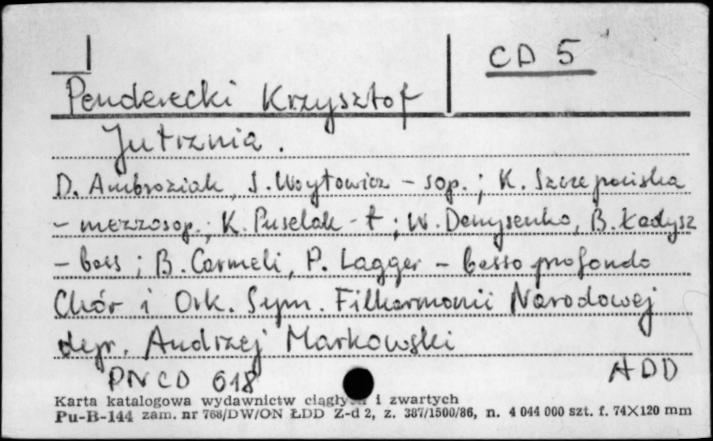 CD 5
Penderecki Krzysztof
Jutrznia.
D. Ambroziak, S. Woytowicz - sop.; K. Szczepańska
- mezzosop.; K. Pustelak - t; W. Denysenko, B. Ładysz
- bass; B. Carmeli, P. Lagger - basso profondo
Chór i Ork. Sym. Filharmonii Narodowej
dyr. Andrzej Markowski
PNCD 618 ADD
Karta katalogowa wydawnictw ciągłych i zwartych
Pu-B-144 zam. nr 768/DW/ON ŁDD Z-d 2, z. 387/1500/86, n. 4 044 000 szt. f. 74×120 mm